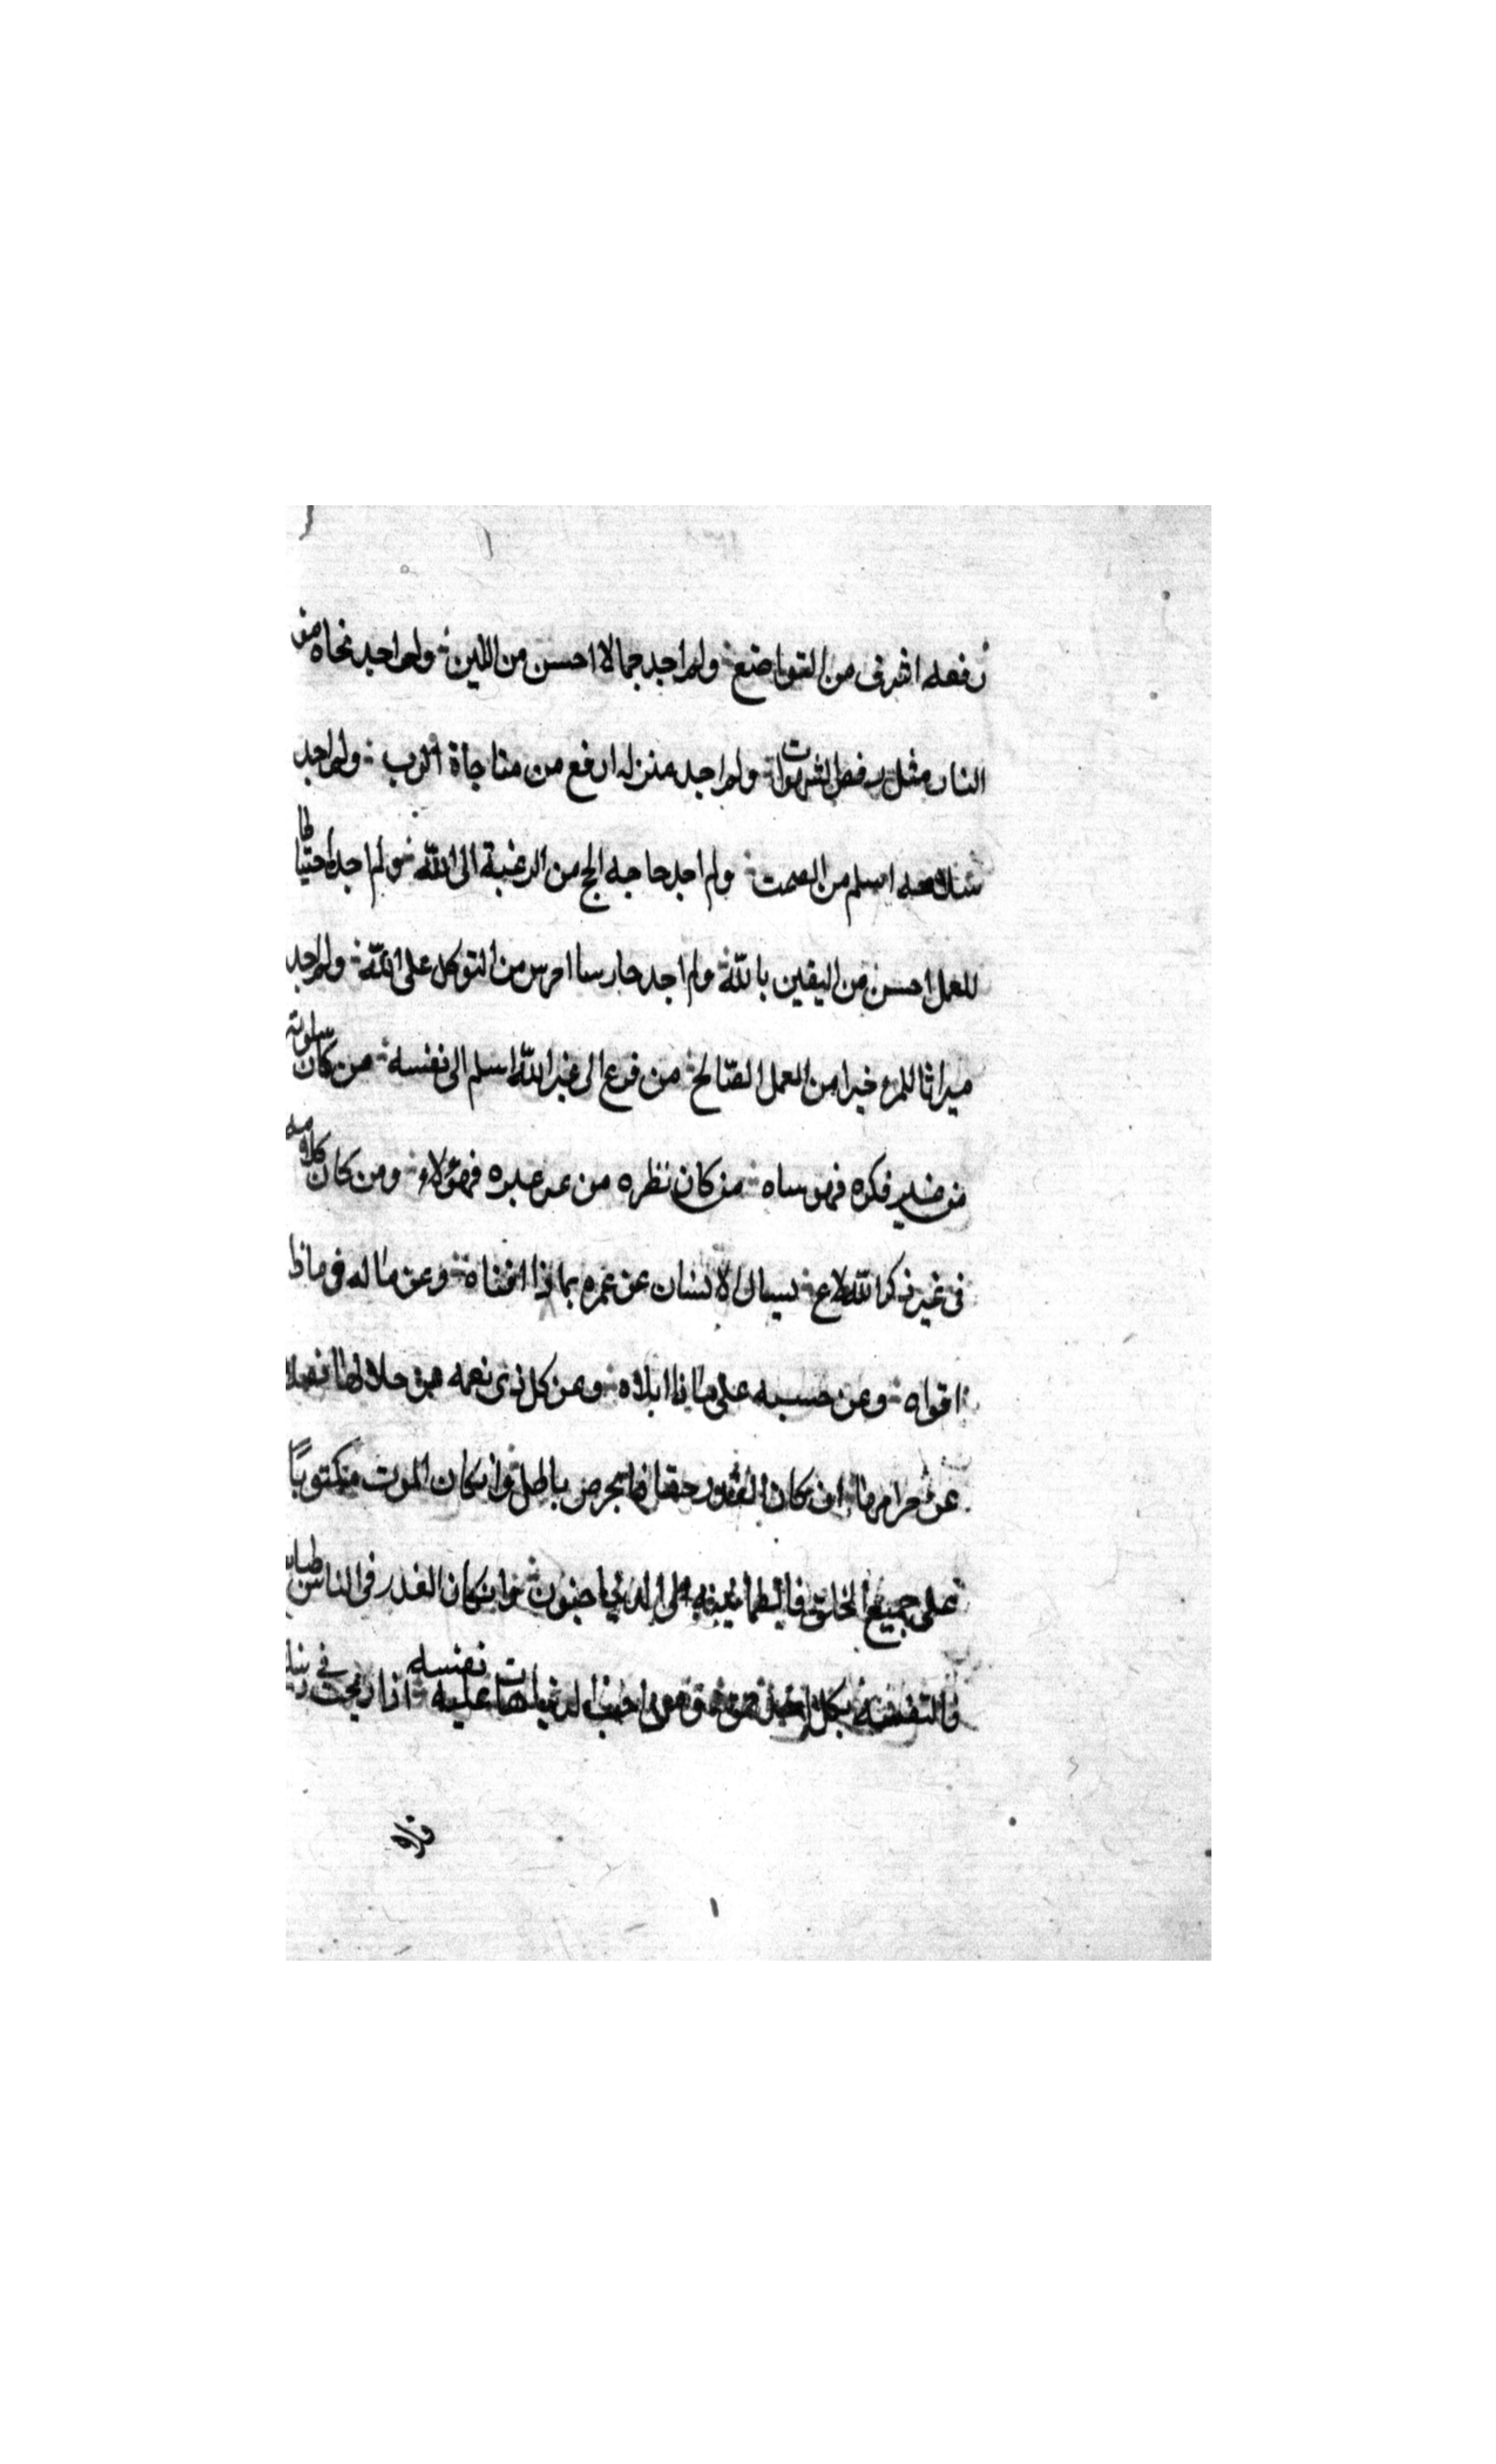 رفعه اشرف من التواضع ولم اجد جمالا احسن من اللين ولم اجد نجاه من
النار مثل رفض الشهوات ولم اجد منزله ارفع من مناجاة الرب ولم اجد
اسلم من الصمت ولم اجد حاجه الج من الرغبة الى الله ولم اجد احتياطا
للعمل احسن من اليقين بالله ولم اجد حارسا احرس من التوكل على الله ولم اجد
ميراثا للمرء خيرا من العمل الصّالح من فزع الى غير الله اسلم الى نفسه من كان سلوته
من غير فكره فهو ساه من كان نظره من غير عبره فهو لاه ومن كان كلامه
فى غير ذكر الله لاع يسال الانسان عن عمره بماذا افناه وعن ماله فى ماذا
اقواه وعن حسبه على ماذا ابلاه وعن كل ذى نعمه من حلالها
عن حرامها ان كان حقا باطل وان كان الموت مكتوبًا
على جميع الخلق الى الدنيا وان كان الغدر فى الناس طباع
بكل احد نفسه عليه اذا ربحت فى